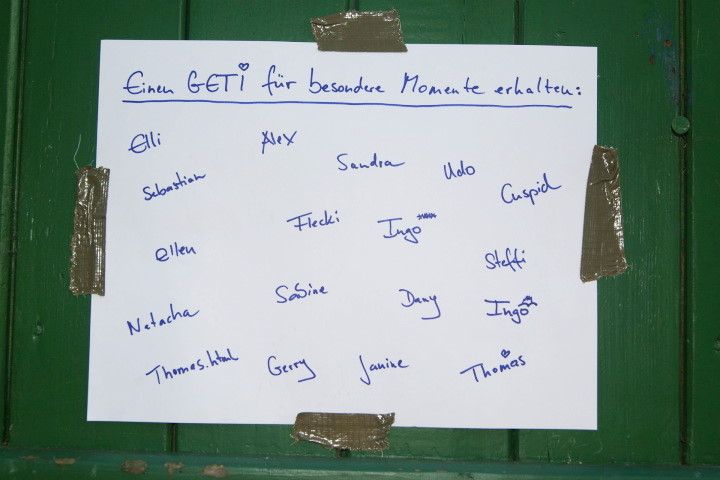 Einen GETi für besondere Momente erhalten:
Elli Alex Sandra Udo
Sebastian Cuspid
Flecki Ingo
Ellen Steffi
Natacha Sabine Dany Ingo
Thomas.html Gerry Janine Thomas